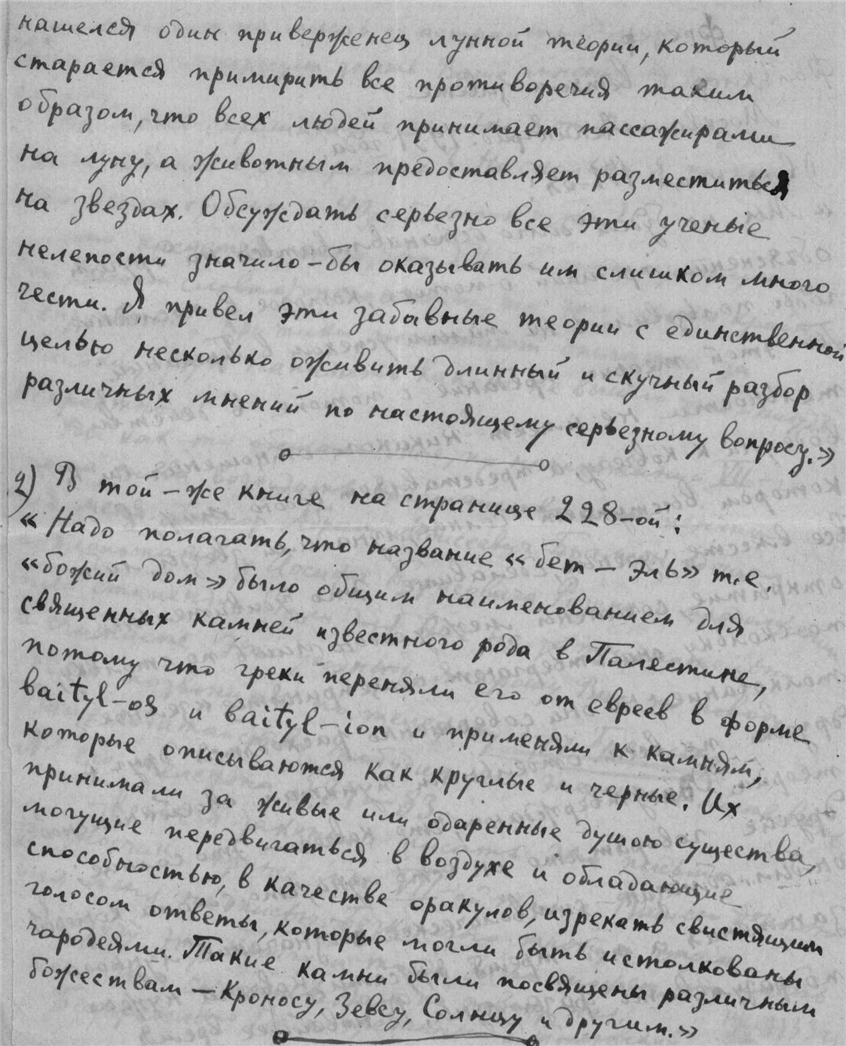 нашелся один приверженец лунной теории, который
старается примирить все противоречия таким
образом, что всех людей принимает пассажирами
на луну, а животным предоставляет разместиться
на звездах. Обсуждать серьезно все эти ученые
нелепости значило-бы оказывать им слишком много
чести. Я привел эти забавные теории с единственной
целью несколько оживить длинный и скучный разбор
различных мнений по настоящему серьезному вопросу.»
2) В той-же книге на странице 228-ой:
« Надо полагать, что название « бет – эль» т.е.
«божий дом» было общим наименованием для
священных камней известного рода в Палестине,
потому что греки переняли его от евреев в форме
baityl-os и baityl-ion и применяли к камням,
которые описываются как круглые и черные. Их
принимали за живые или одаренные душою существа,
могущие передвигаться в воздухе и обладающие
способностью, в качестве оракулов, изрекать свистящим
голосом ответы, которые могли быть истолкованы
чародеями. Такие камни были посвящены различным
божествам – Кроносу, Зевсу, Солнцу и другим.»